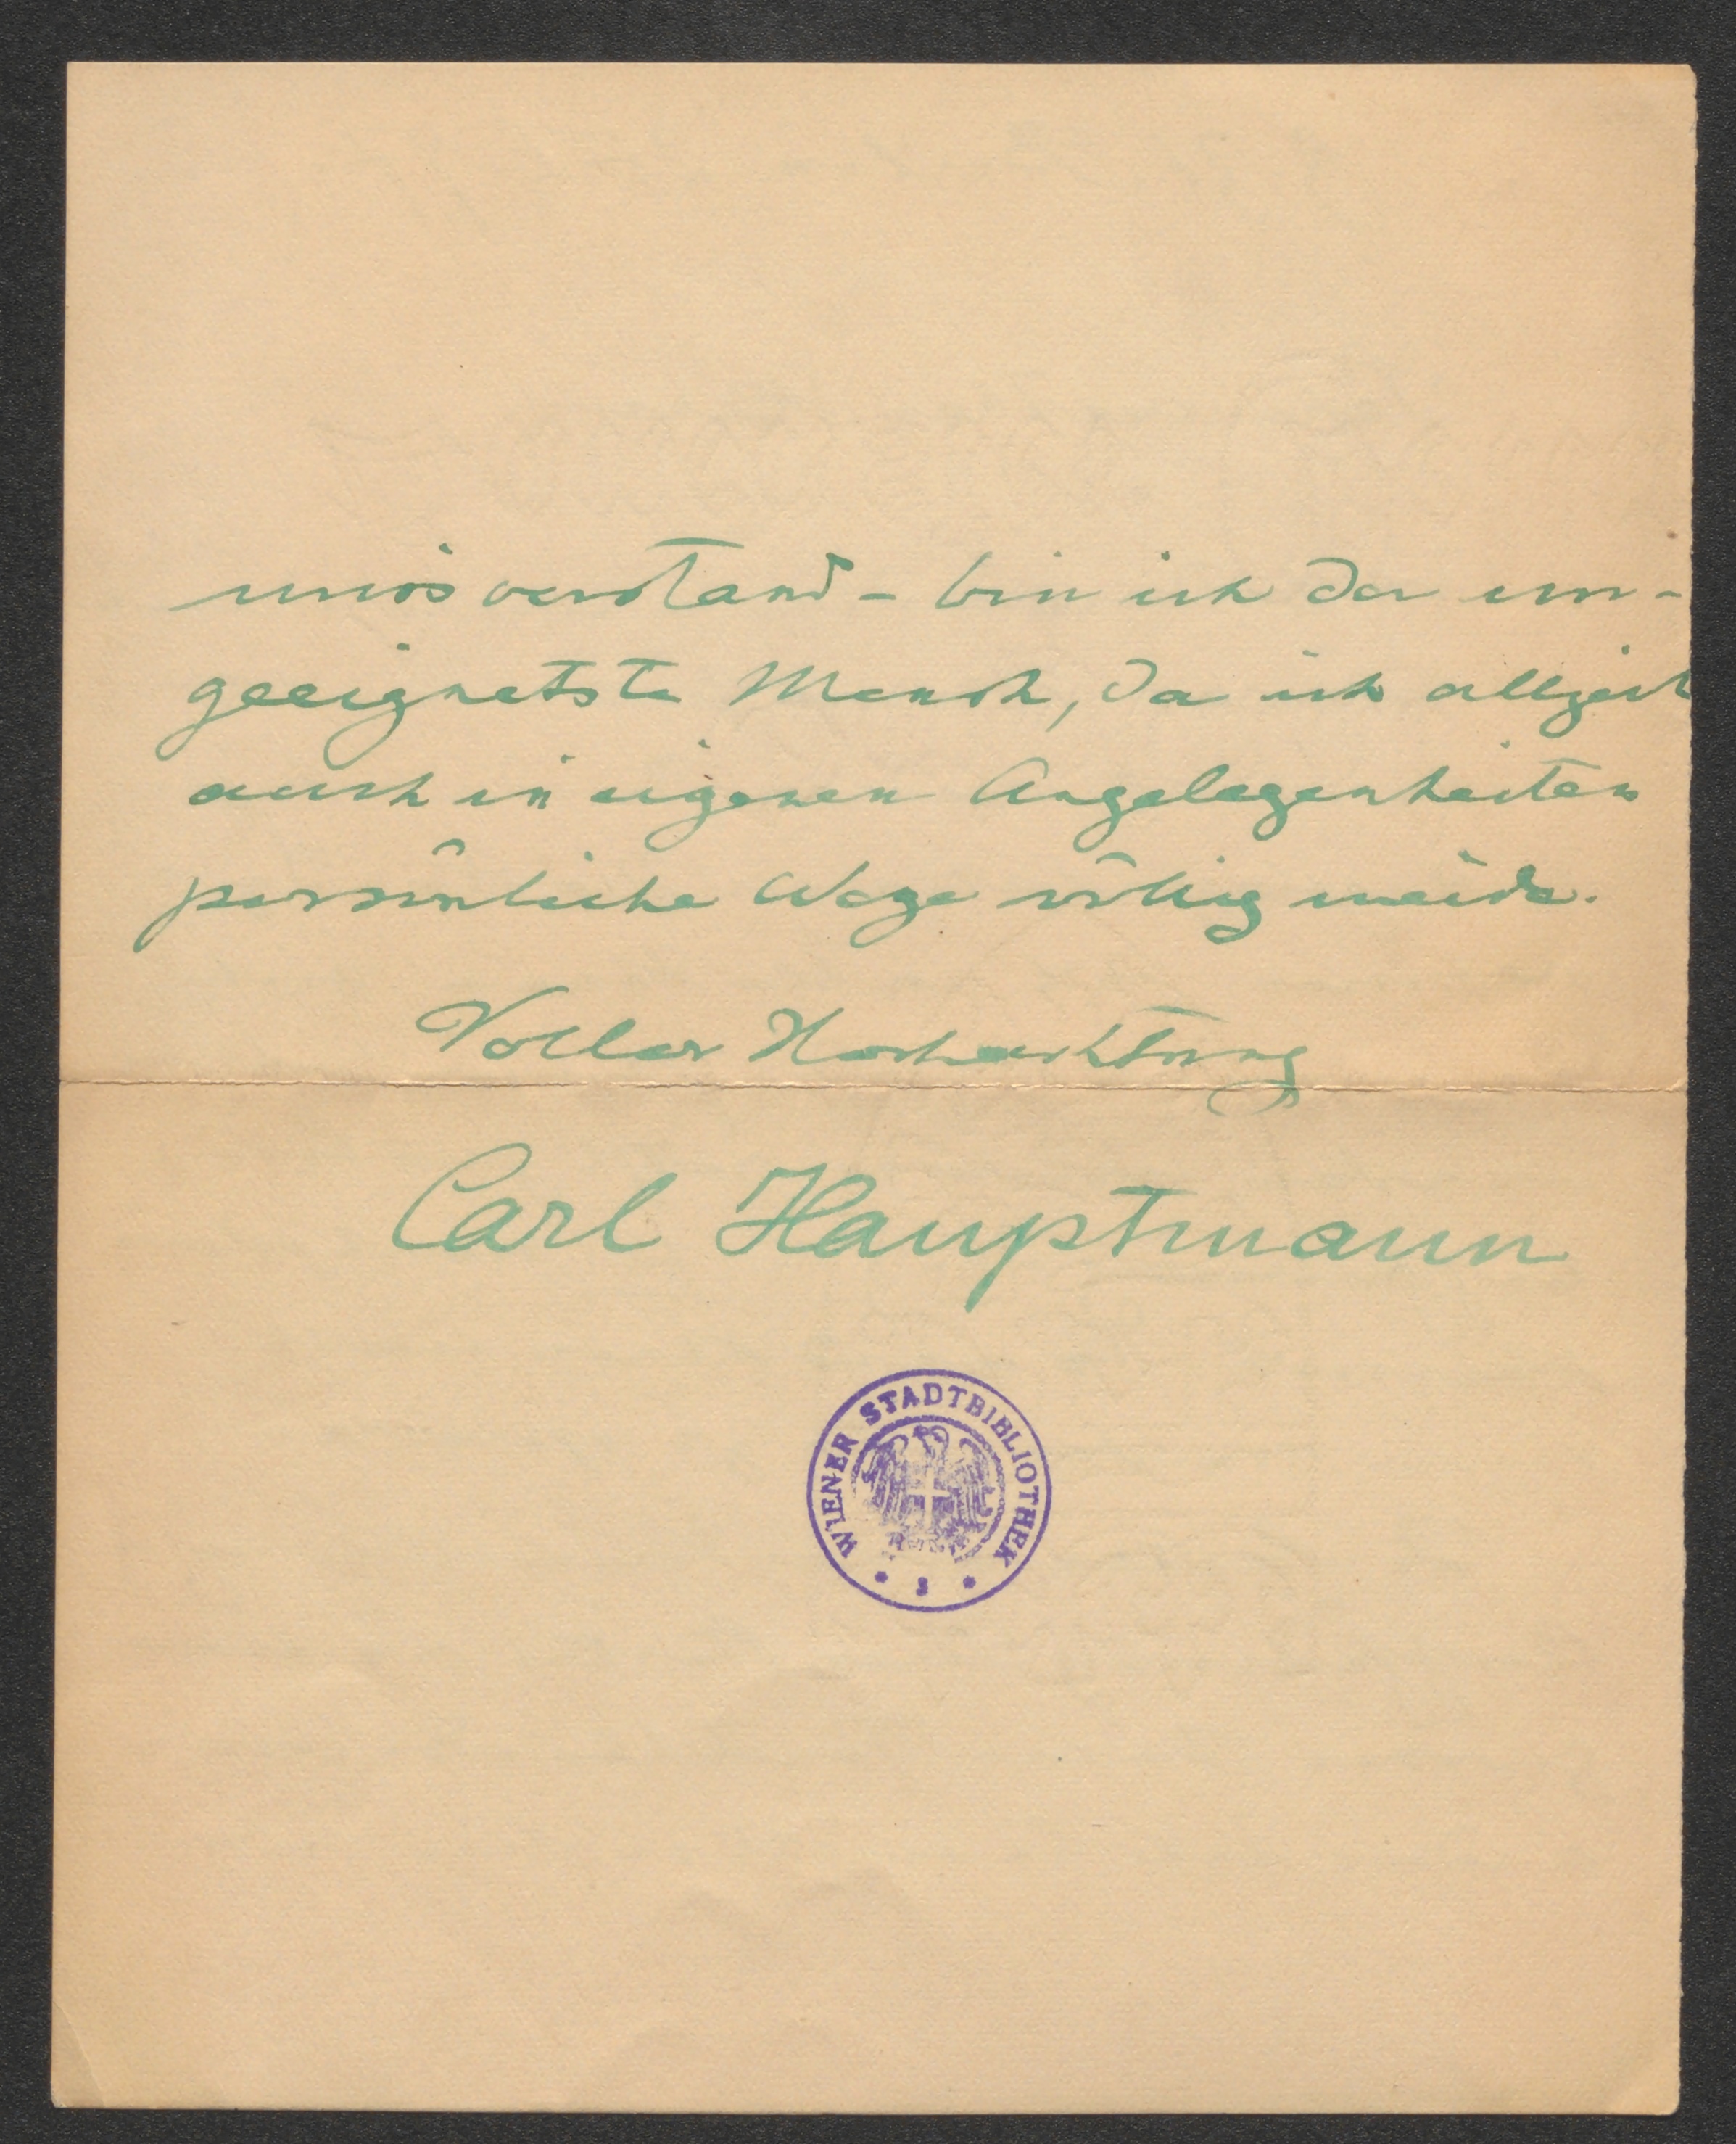 misverstand - bin ich der un-
geeignetste Mensch, da ich allzeit
auch in eigenen Angelegenheiten
persönliche Wege völlig meide.
Voller Hochachtung
Carl Hauptmann
WIENER STADTBIBLIOTHEK